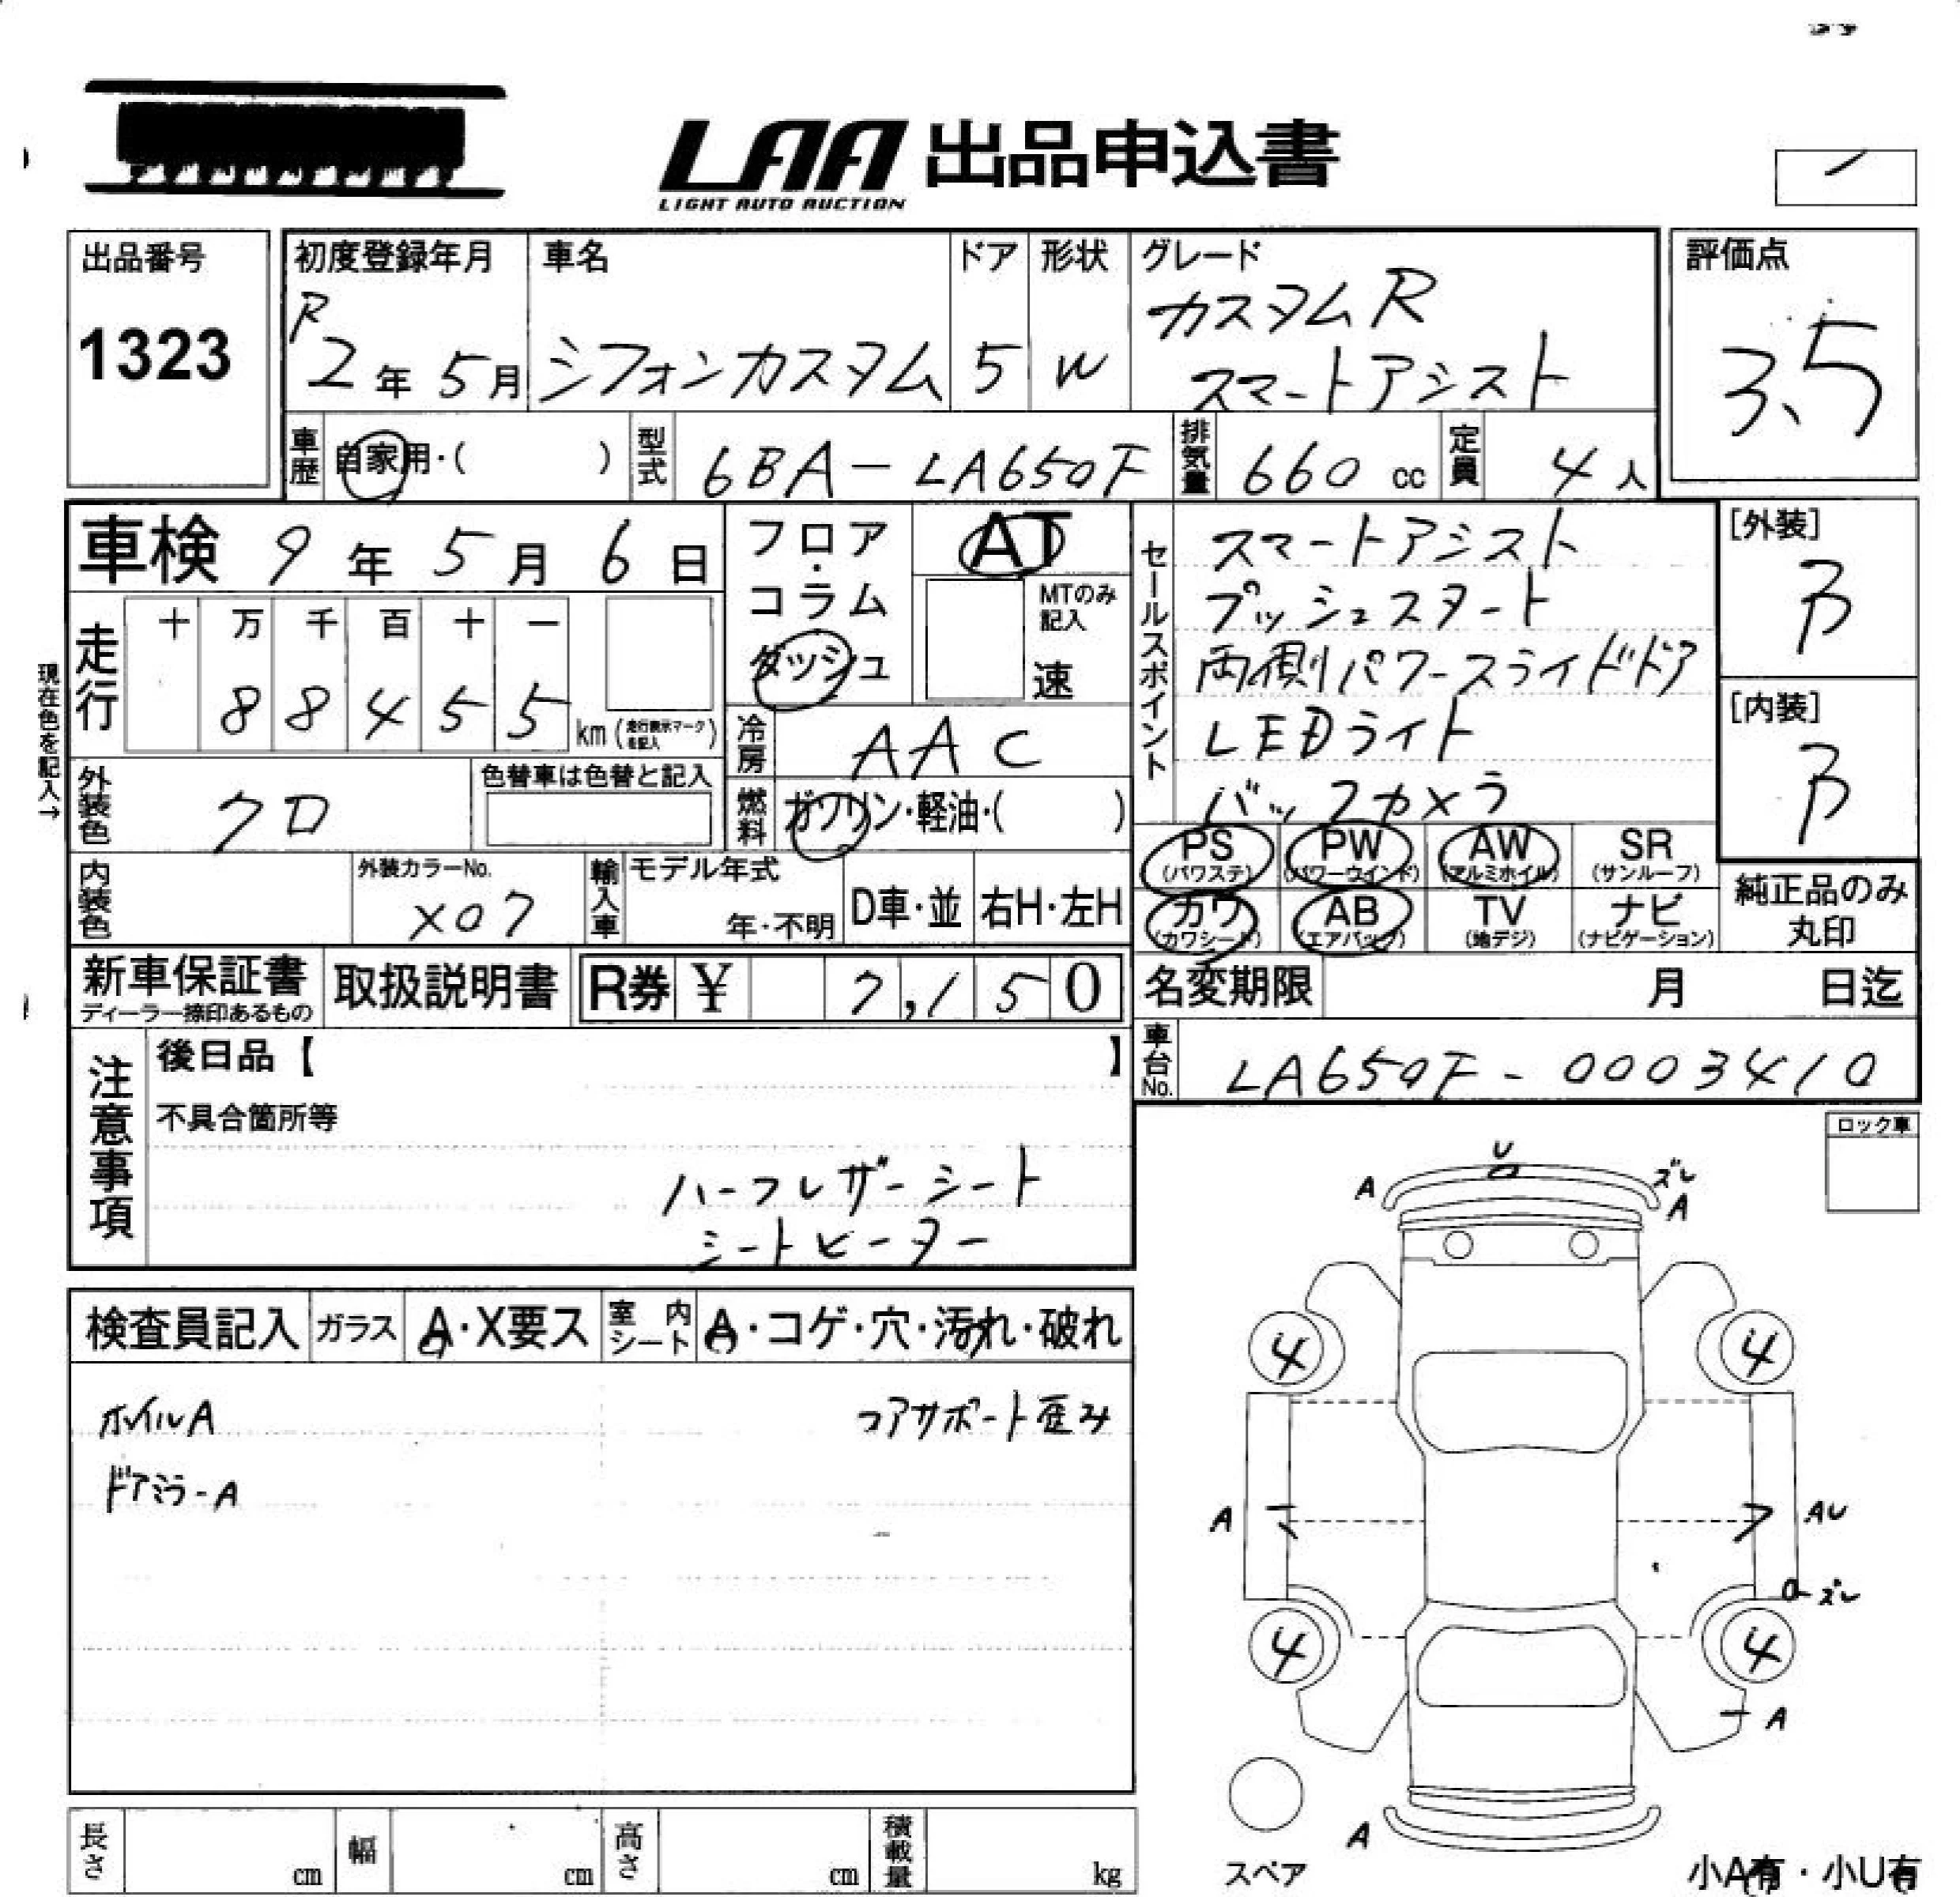 LAA 出品申込書
LIGHT AUTO AUCTION
出品番号
1323
初度登録年月
R
2年 5月
車名
シフォンカスタム
ドア
5
形状
W
グレード
カスタムR
スマートアシスト
評価点
3.5
車歴
自家用・( )
型式
6BA-LA650F
排気量
660 cc
定員
4人
車検 9年 5月 6日
走行
十 万 千 百 十 一
8 8 4 5 5
km (走行表示マークを記入)
現在色を記入→
外装色
クロ
色替車は色替と記入
内装色
外装カラーNo.
X07
輸入車
モデル年式
年・不明
D車・並
右H・左H
フロア・
コラム
ダッシュ
AT
MTのみ
記入
速
冷房
AAC
燃料
ガソリン・軽油・( )
セールスポイント
スマートアシスト
プッシュスタート
両側パワースライドドア
LEDライト
バックカメラ
[外装]
B
[内装]
B
PS
(パワステ)
PW
(パワーウインド)
AW
(アルミホイル)
SR
(サンルーフ)
カワ
(カワシート)
AB
(エアバッグ)
TV
(地デジ)
ナビ
(ナビゲーション)
純正品のみ
丸印
新車保証書
ディーラー捺印あるもの
取扱説明書
R券 ¥ 7,150
名変期限 月 日迄
車台No.
LA650F-0003410
注意事項
後日品【 】
不具合箇所等
ハーフレザーシート
シートヒーター
ロック車
検査員記入
ガラス
A・X要ス
室内シート
A・コゲ・穴・汚れ・破れ
ホイルA
コアサポート歪み
ドアミラーA
U
A
ズレ
A
4
4
A
AU
ズレ
4
4
A
A
スペア
小A有・小U有
長さ cm
幅 cm
高さ cm
積載量 kg